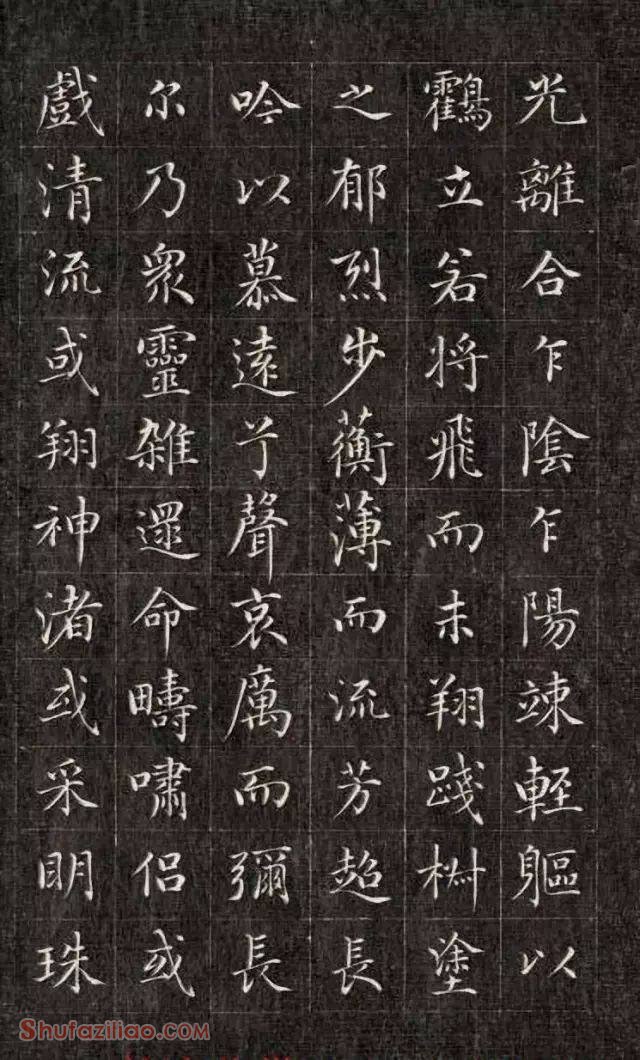 光離合乍陰乍陽竦輕軀以
鸖立若将飛而未翔踐椒塗
之郁烈步蘅薄而流芳超長
吟以慕遠兮聲哀厲而彌長
尔乃衆靈雜遝命疇嘯侣或
戲清流或翔神渚或采明珠
Shufaziliao.com